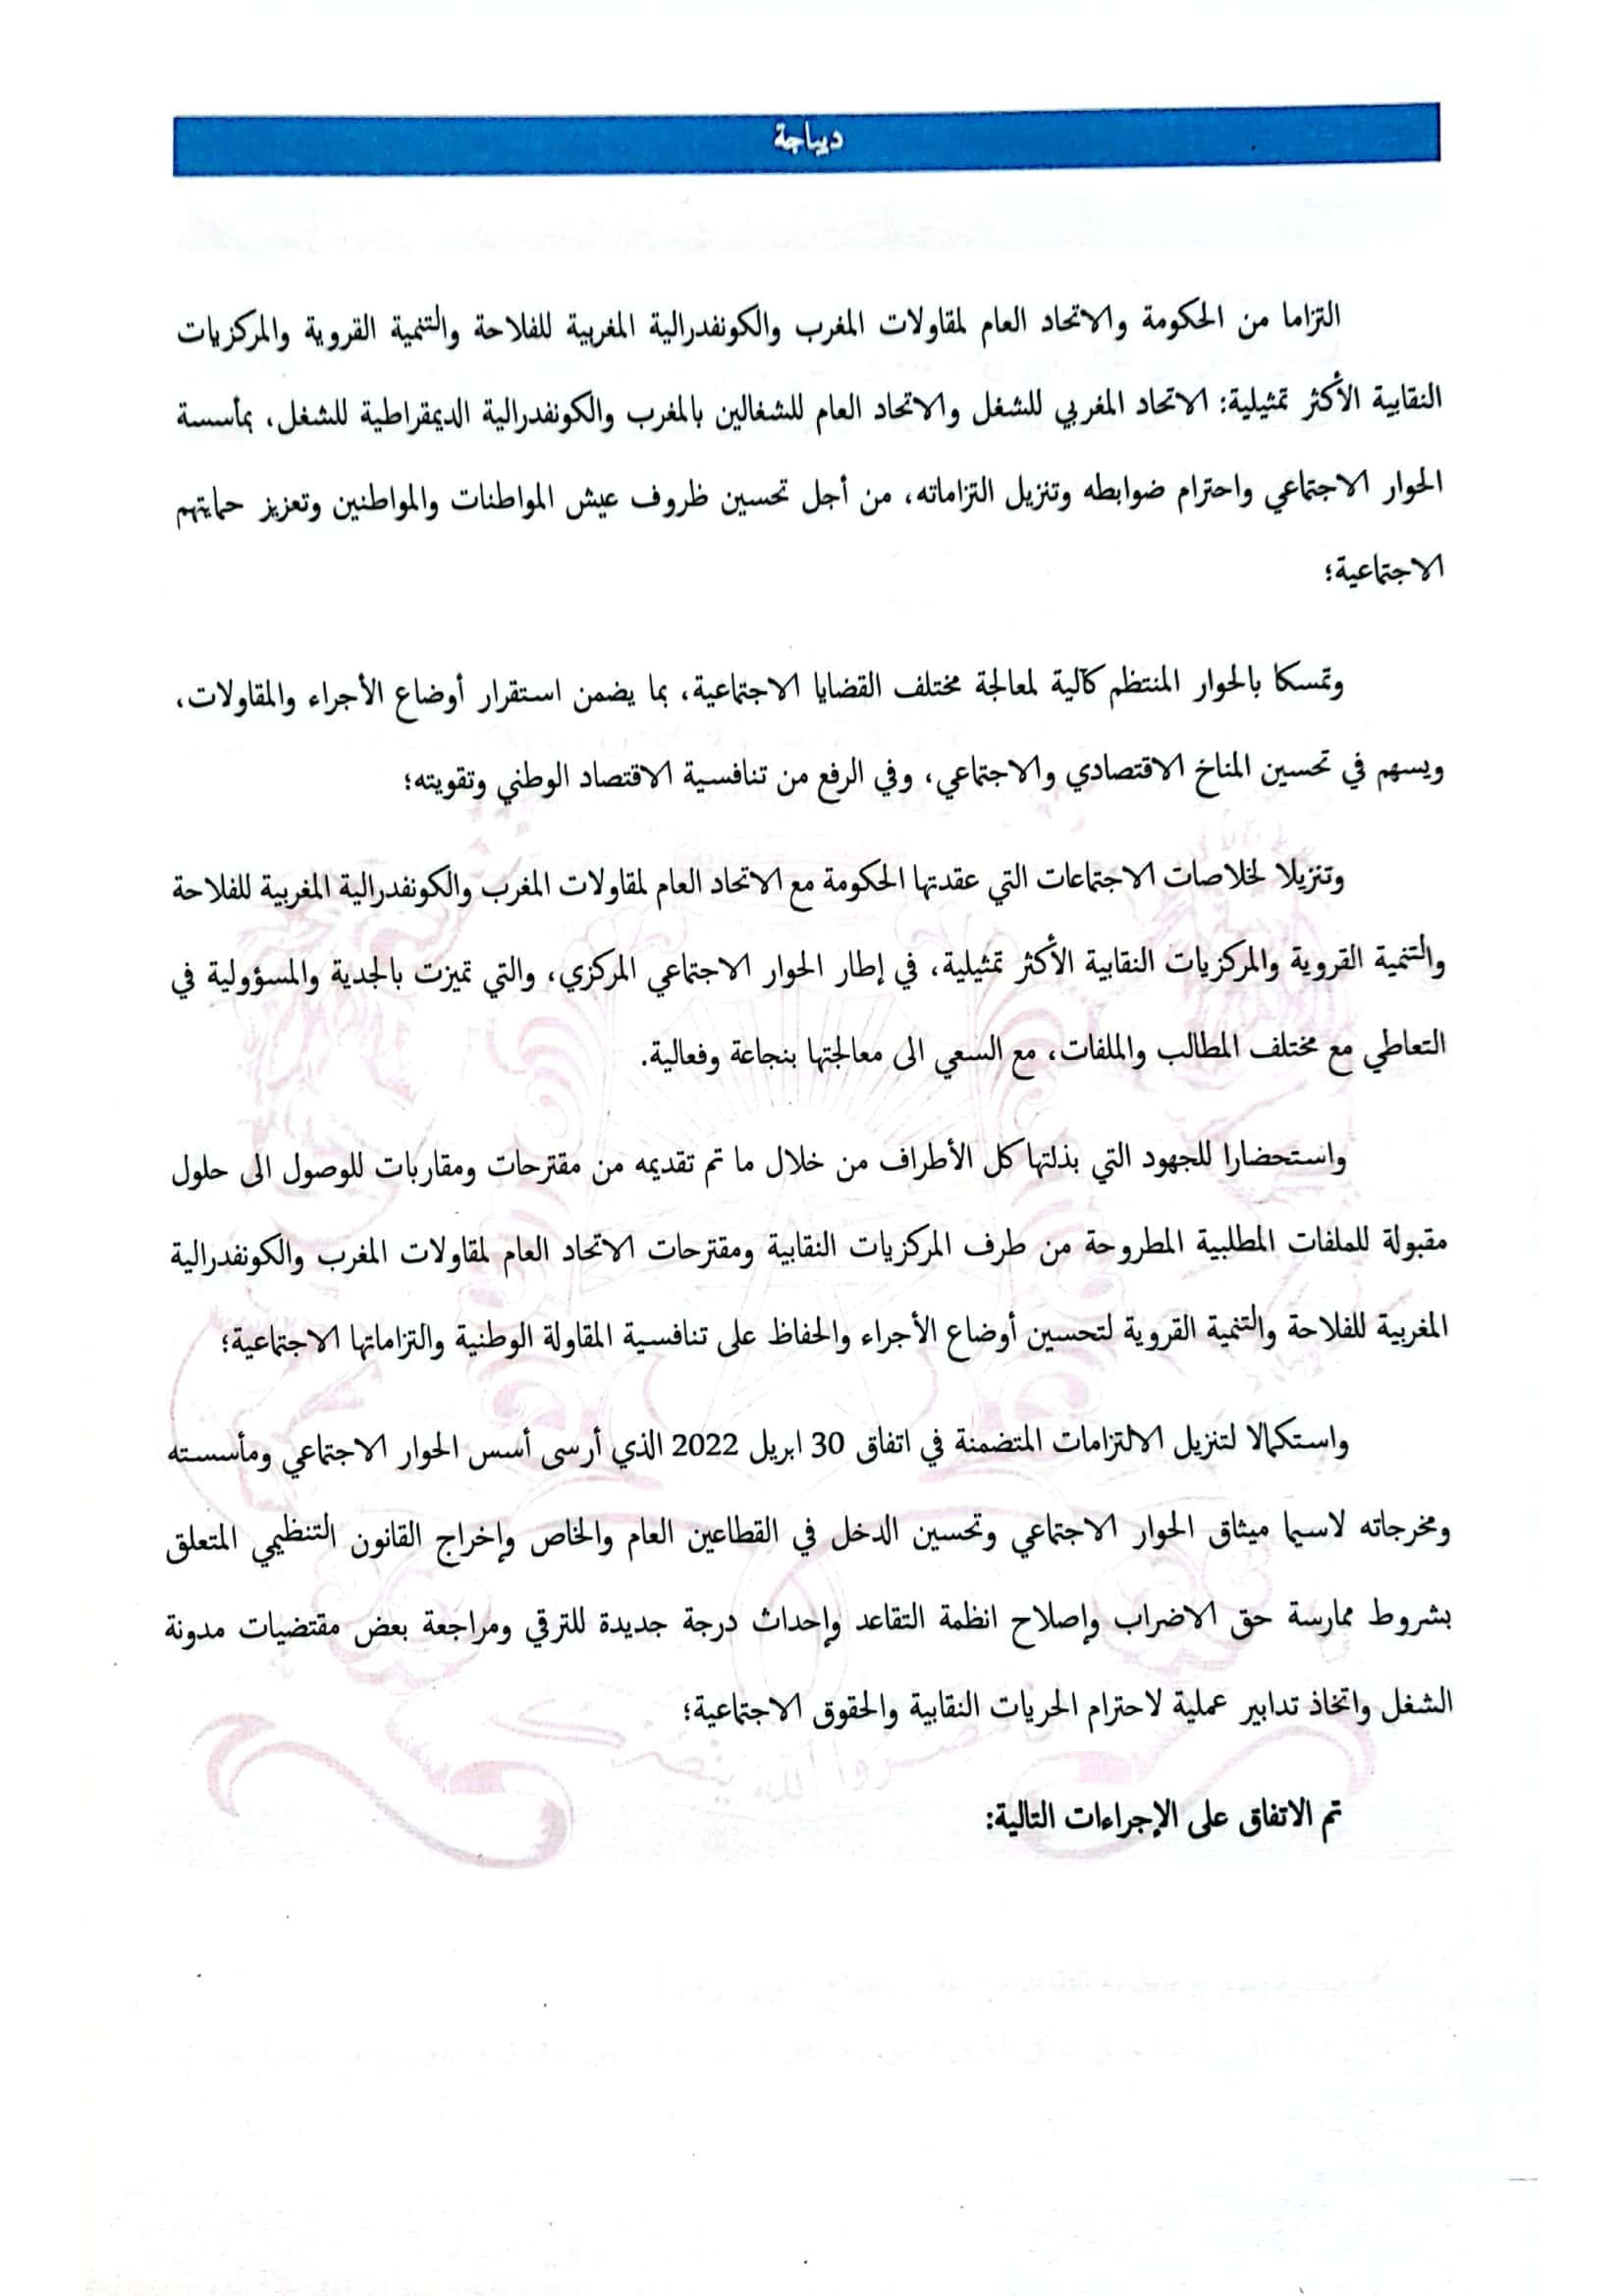 ديباجة
التزاما من الحكومة والاتحاد العام لمقاولات المغرب والكونفدرالية المغربية للفلاحة والتنمية القروية والمركزيات
النقابية الأكثر تمثيلية: الاتحاد المغربي للشغل والاتحاد العام للشغالين بالمغرب والكونفدرالية الديمقراطية للشغل، بمأسسة
الحوار الاجتماعي واحترام ضوابطه وتنزيل التزاماته، من أجل تحسين ظروف عيش المواطنات والمواطنين وتعزيز حمايتهم
الاجتماعية؛
وتمسكا بالحوار المنتظم كآلية لمعالجة مختلف القضايا الاجتماعية، بما يضمن استقرار أوضاع الأجراء والمقاولات،
ويسهم في تحسين المناخ الاقتصادي والاجتماعي، وفي الرفع من تنافسية الاقتصاد الوطني وتقويته؛
وتنزيلا لخلاصات الاجتماعات التي عقدتها الحكومة مع الاتحاد العام لمقاولات المغرب والكونفدرالية المغربية للفلاحة
والتنمية القروية والمركزيات النقابية الأكثر تمثيلية، في إطار الحوار الاجتماعي المركزي، والتي تميزت بالجدية والمسؤولية في
التعاطي مع مختلف المطالب والملفات، مع السعي الى معالجتها بنجاعة وفعالية.
واستحضارا للجهود التي بذلتها كل الأطراف من خلال ما تم تقديمه من مقترحات ومقاربات للوصول الى حلول
مقبولة للملفات المطلبية المطروحة من طرف المركزيات النقابية ومقترحات الاتحاد العام لمقاولات المغرب والكونفدرالية
المغربية للفلاحة والتنمية القروية لتحسين أوضاع الأجراء والحفاظ على تنافسية المقاولة الوطنية والتزاماتها الاجتماعية؛
واستكمالا لتنزيل الالتزامات المتضمنة في اتفاق 30 ابريل 2022 الذي أرسى أسس الحوار الاجتماعي ومأسسته
ومخرجاته لاسيما ميثاق الحوار الاجتماعي وتحسين الدخل في القطاعين العام والخاص وإخراج القانون التنظيمي المتعلق
بشروط ممارسة حق الاضراب وإصلاح انظمة التقاعد وإحداث درجة جديدة للترقي ومراجعة بعض مقتضيات مدونة
الشغل واتخاذ تدابير عملية لاحترام الحريات النقابية والحقوق الاجتماعية؛
تم الاتفاق على الإجراءات التالية: